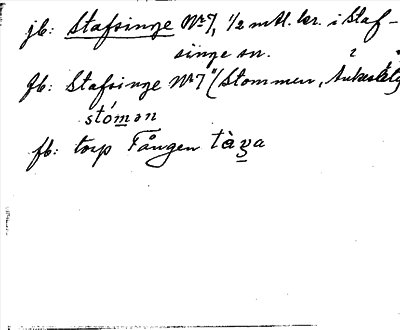 jb: Stafsinge Nr 7, 1/2 mtl. kr. i Staf-
singe sn.
fb: Stafsinge Nr 7 "(Stommen,
stómən
fb: torp Fången tàʒa